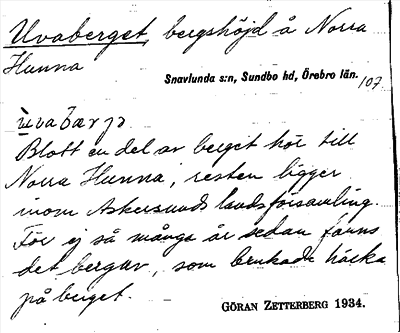 Uvaberget, bergshöjd å Norra
Hunna
Snavlunda s:n, Sundbo hd, Örebro län.
107
Blott en del av berget hör till
Norra Hunna, resten ligger
inom Askersunds landsförsamling.
För ej så många år sedan fanns
det berguv, som brukade häcka
på berget.
GÖRAN ZETTERBERG 1934.